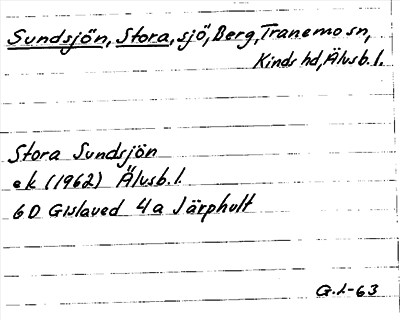 Sundsjön, Stora, sjö, Berg, Tranemo sn,
Kinds hd, Älvsb. l.
Stora Sundsjön
ek (1962) Älvsb. l.
6D Gislaved 4a Järphult
G.L-63